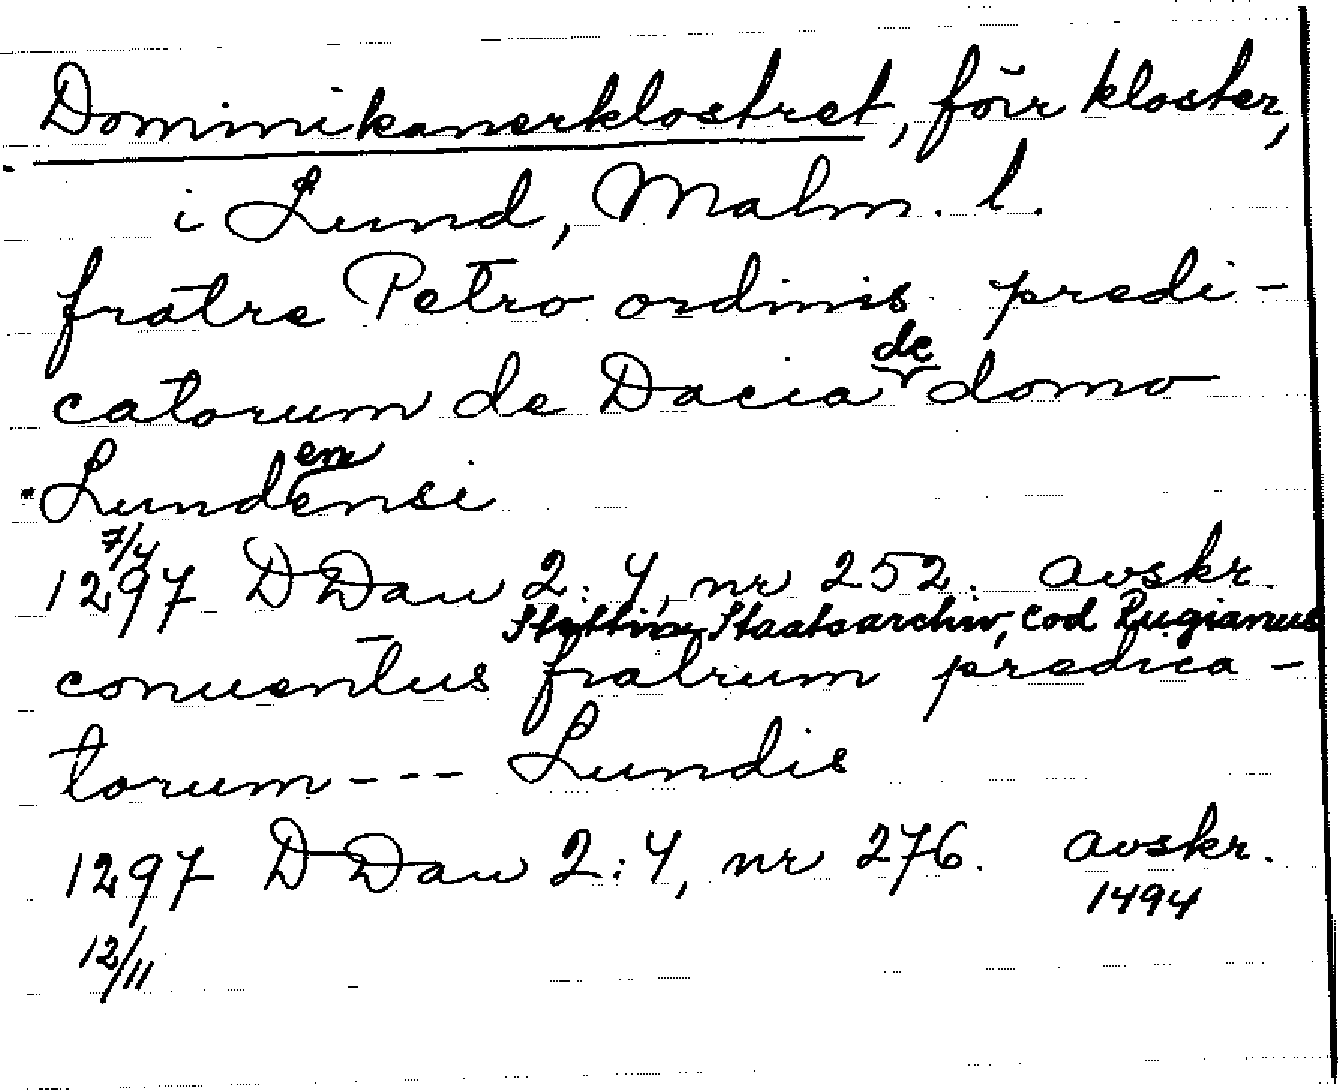 Dominikanerklostret, förr kloster,
i Lund, Malm. l.
fratre Petro ordinis predi-
catorum de Dacia de domo
Lundensi
en
7/4
1297 DDan 2:4, nr 252. avskr.
Stettin, Staatsarchiv, Cod Rugianus
conuentus fratrum predica-
torum --- Lundis
1297 DDan 2:4, nr 276. avskr.
1494
12/11